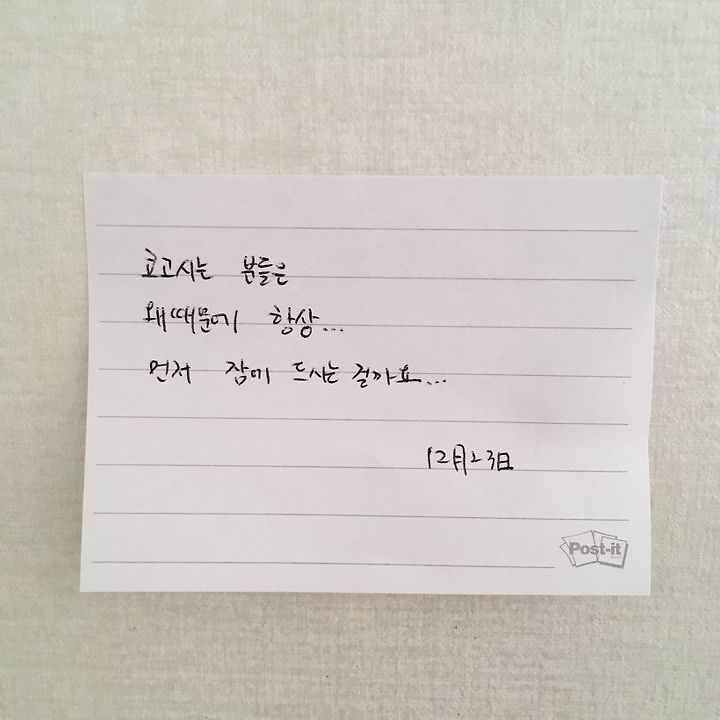 코고시는 분들은
왜때문에 항상...
먼저 잠에 드시는 걸까요...
12月23日
Post-it